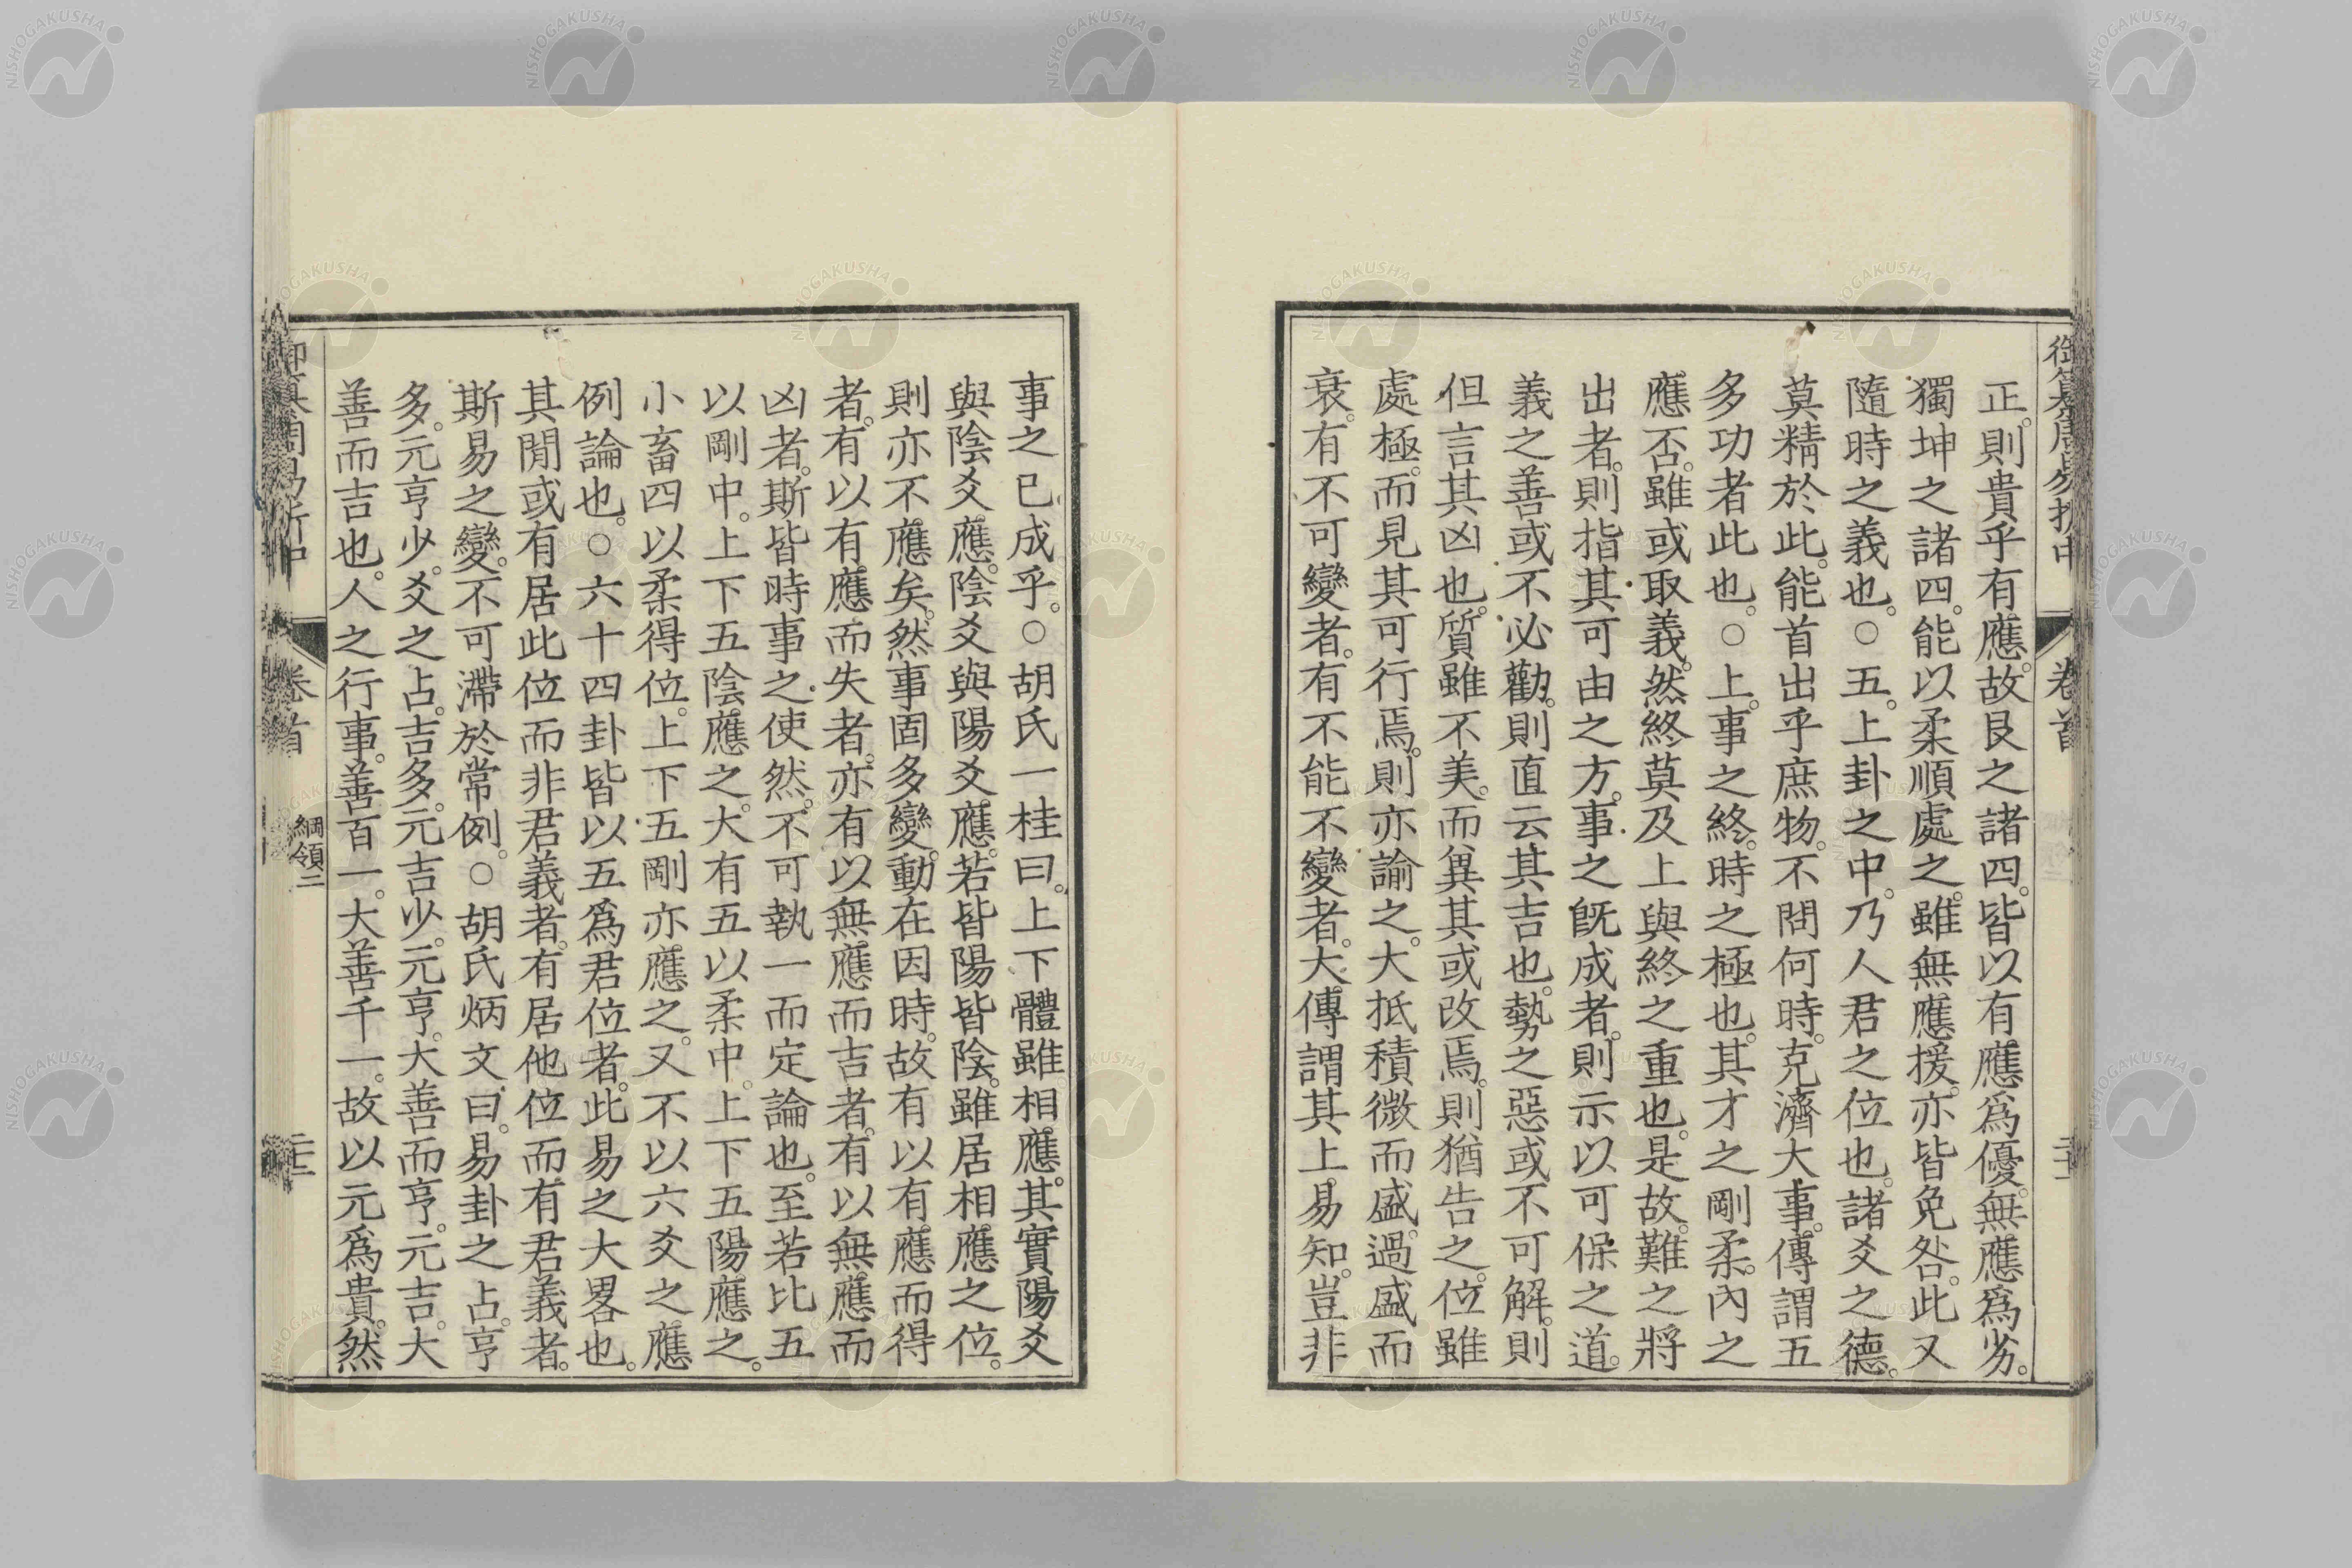 御纂周易折中
卷首
正。則貴乎有應。故艮之諸四。皆以有應爲優。無應爲劣。
獨坤之諸四。能以柔順處之。雖無應援。亦皆免咎。此又
隨時之義也。○五。上卦之中。乃人君之位也。諸爻之德。
莫精於此。能首出乎庶物。不問何時。克濟大事。傳謂五
多功者此也。○上。事之終。時之極也。其才之剛柔。內之
應否。雖或取義。然終莫及上與終之重也。是故。難之將
出者。則指其可由之方。事之旣成者。則示以可保之道。
義之善或不必勸。則直云其吉也。勢之惡或不可解。則
但言其凶也。質雖不美。而兾其或改焉。則猶告之。位雖
處極。而見其可行焉。則亦諭之。大抵積微而盛。過盛而
衰。有不可變者。有不能不變者。大傳謂其上易知。豈非
事之已成乎。○胡氏一桂曰。上下體雖相應。其實陽爻
與陰爻應。陰爻與陽爻應。若皆陽皆陰。雖居相應之位。
則亦不應矣。然事固多變。動在因時。故有以有應而得
者。有以有應而失者。亦有以無應而吉者。有以無應而
凶者。斯皆時事之使然。不可執一而定論也。至若比五
以剛中。上下五陰應之。大有五以柔中。上下五陽應之。
小畜四以柔得位。上下五剛亦應之。又不以六爻之應
例論也。○六十四卦皆以五爲君位者。此易之大畧也。
其閒或有居此位而非君義者。有居他位而有君義者。
斯易之變。不可滯於常例。○胡氏炳文曰。易卦之占。亨
多。元亨少。爻之占。吉多。元吉少。元亨。大善而亨。元吉。大
善而吉也。人之行事。善百一。大善千一。故以元爲貴。然
御纂周易折中
卷首
綱領二
NISHOGAKUSHA